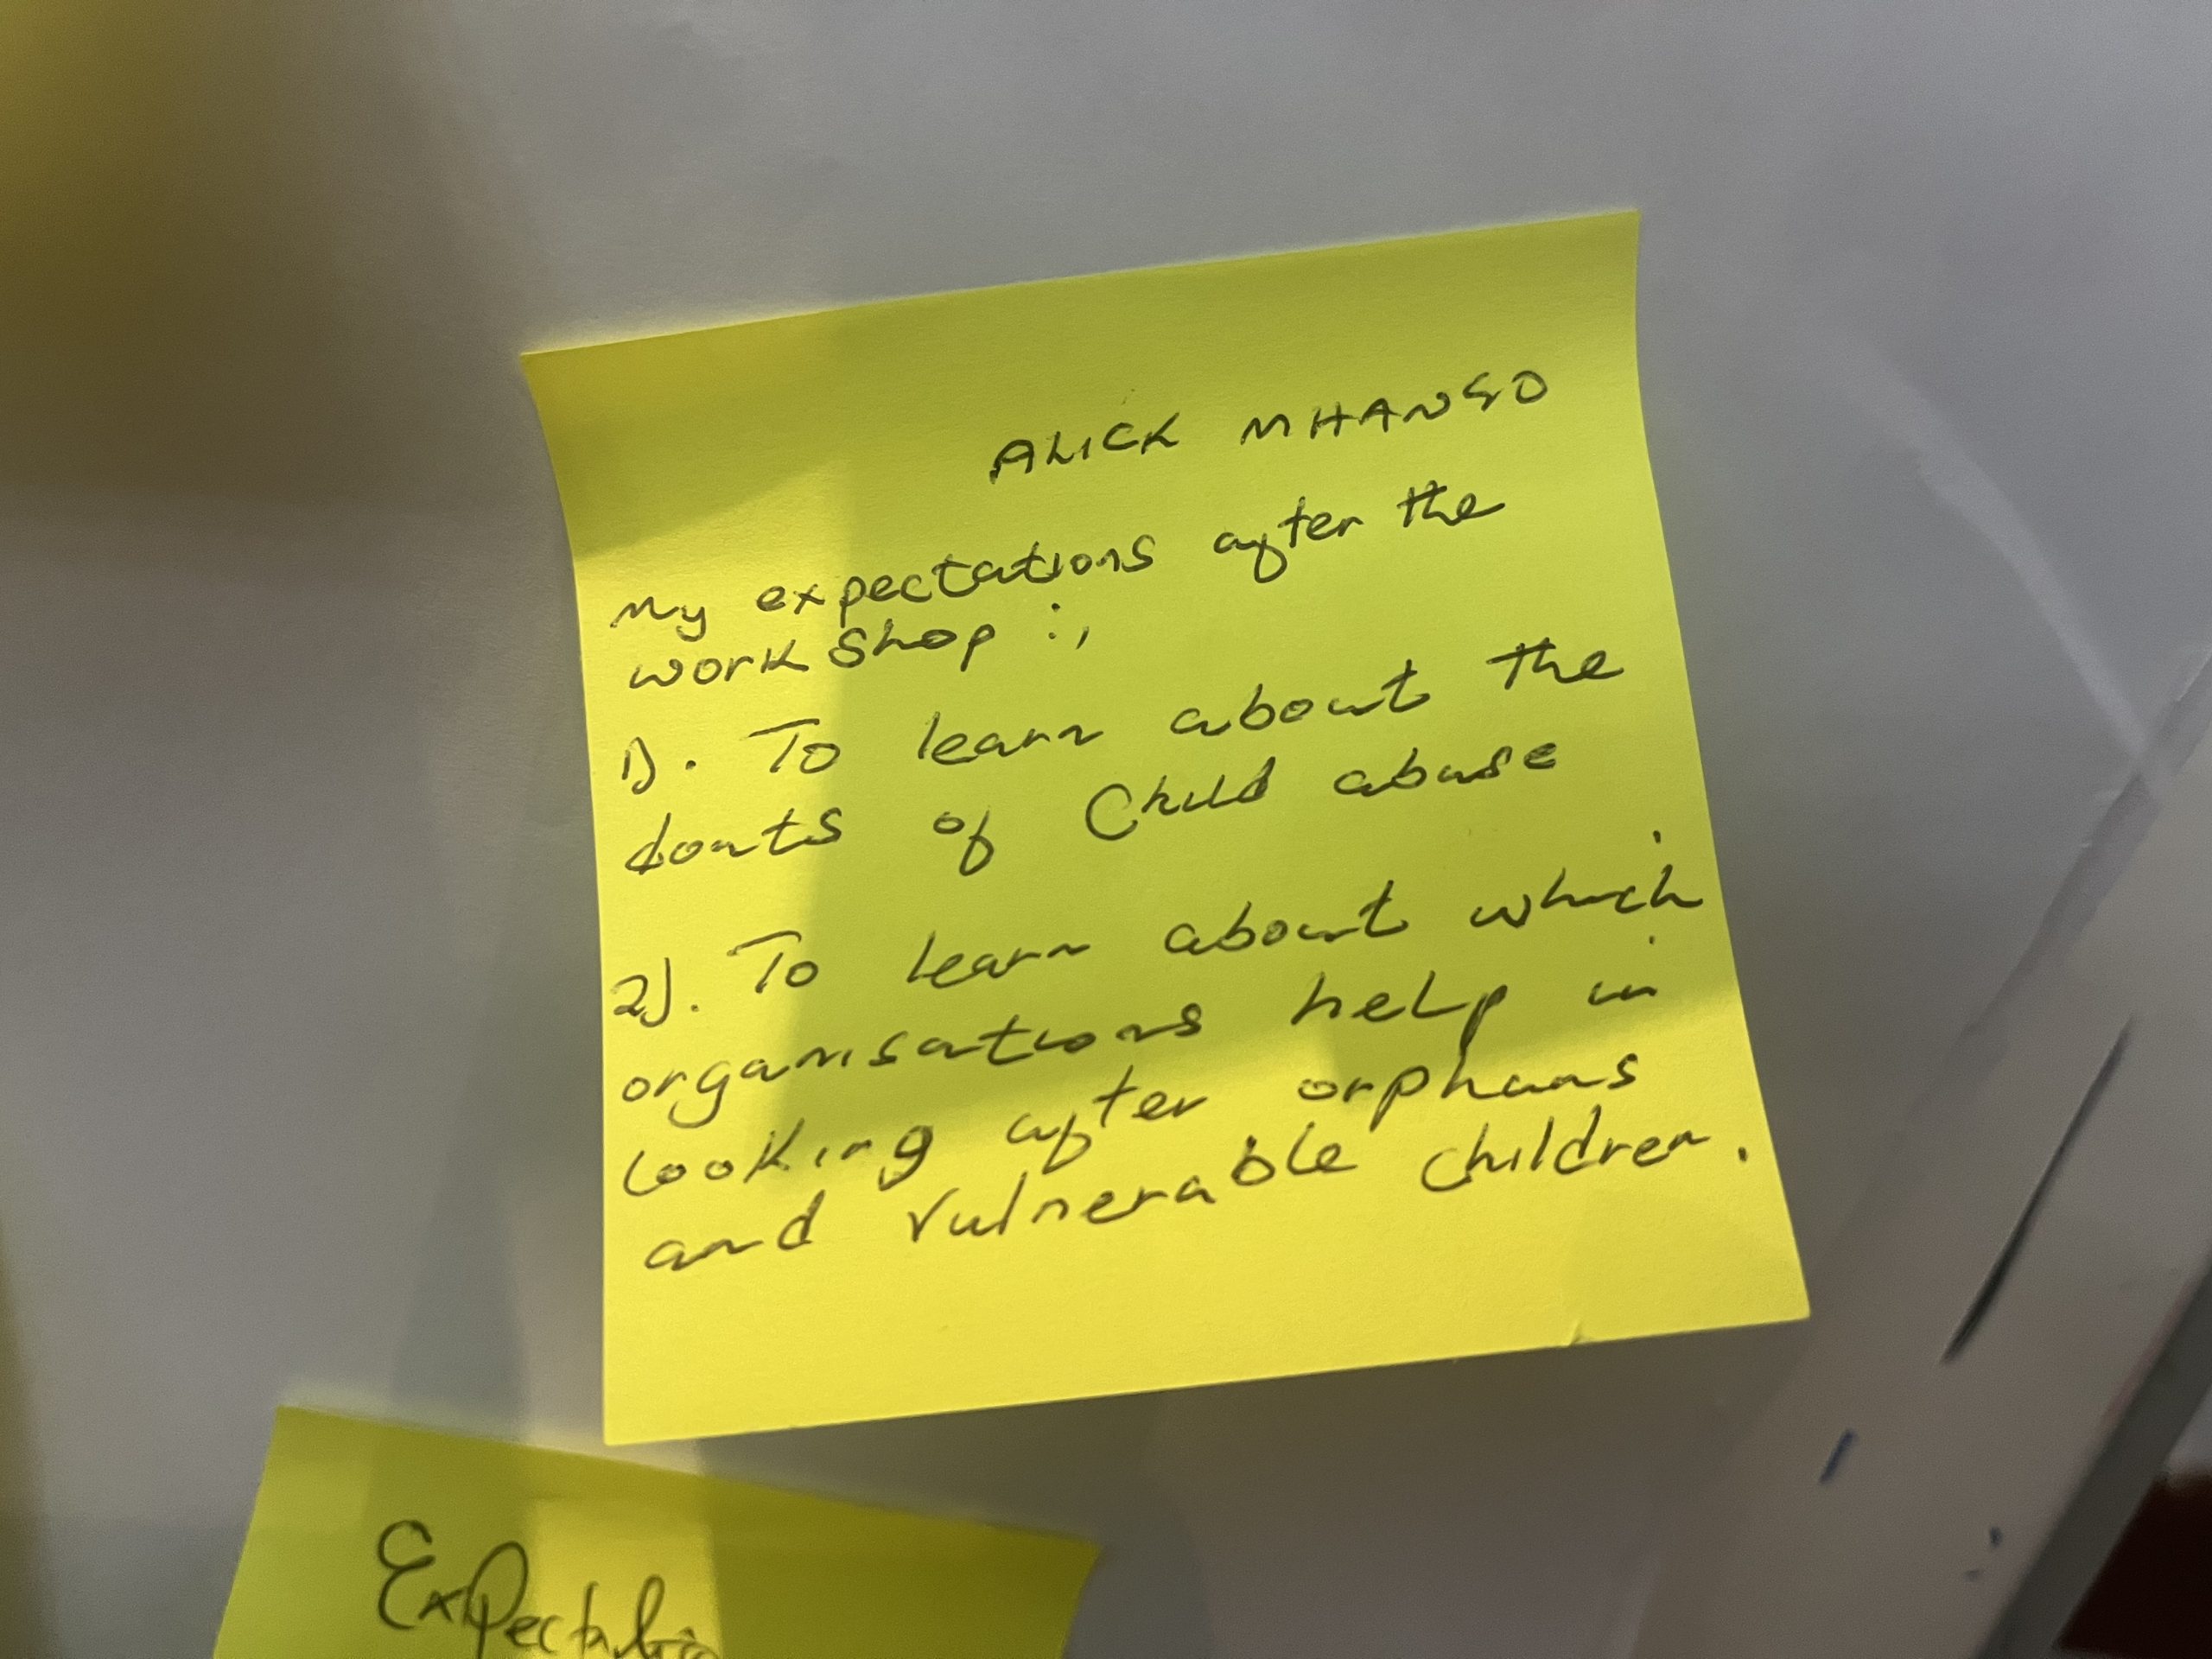 ALICK MHANGO
My expectations after the
work Shop :,
1). To learn about the
donts of Child abuse
2). To learn about which
organisations help in
looking after orphans
and vulnerable children.